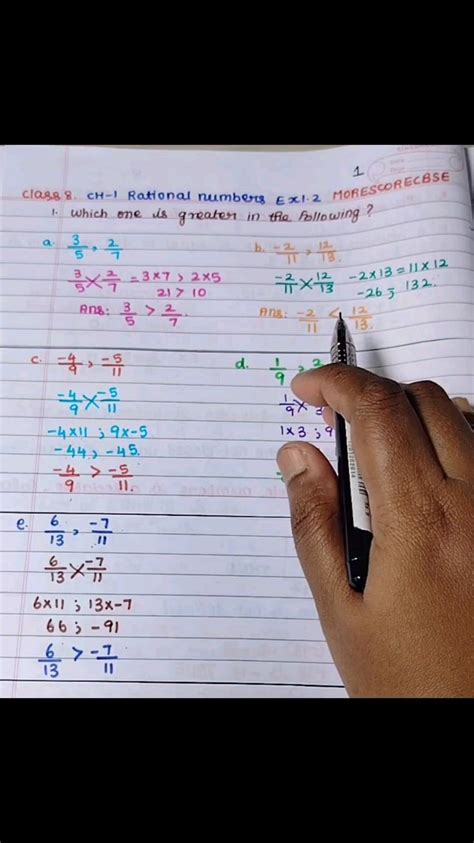 1
Class 8. CH-1 Rational numbers Ex1.2 MORESCORECBSE
1. Which one is greater in the following?
a. 3/5 , 2/7
3/5 × 2/7 = 3×7 , 2×5
21 > 10
Ans: 3/5 > 2/7.
b. -2/11 , 12/13.
-2/11 × 12/13 -2×13 = 11×12
-26 ; 132.
Ans: -2/11 < 12/13.
c. -4/9 , -5/11
-4/9 × -5/11
-4×11 ; 9×-5
-44, -45.
-4/9 > -5/11.
d. 1/9 ,
1/9 × 3
1×3 ; 9
e. 6/13 , -7/11
6/13 × -7/11
6×11 ; 13×-7
66 ; -91
6/13 > -7/11